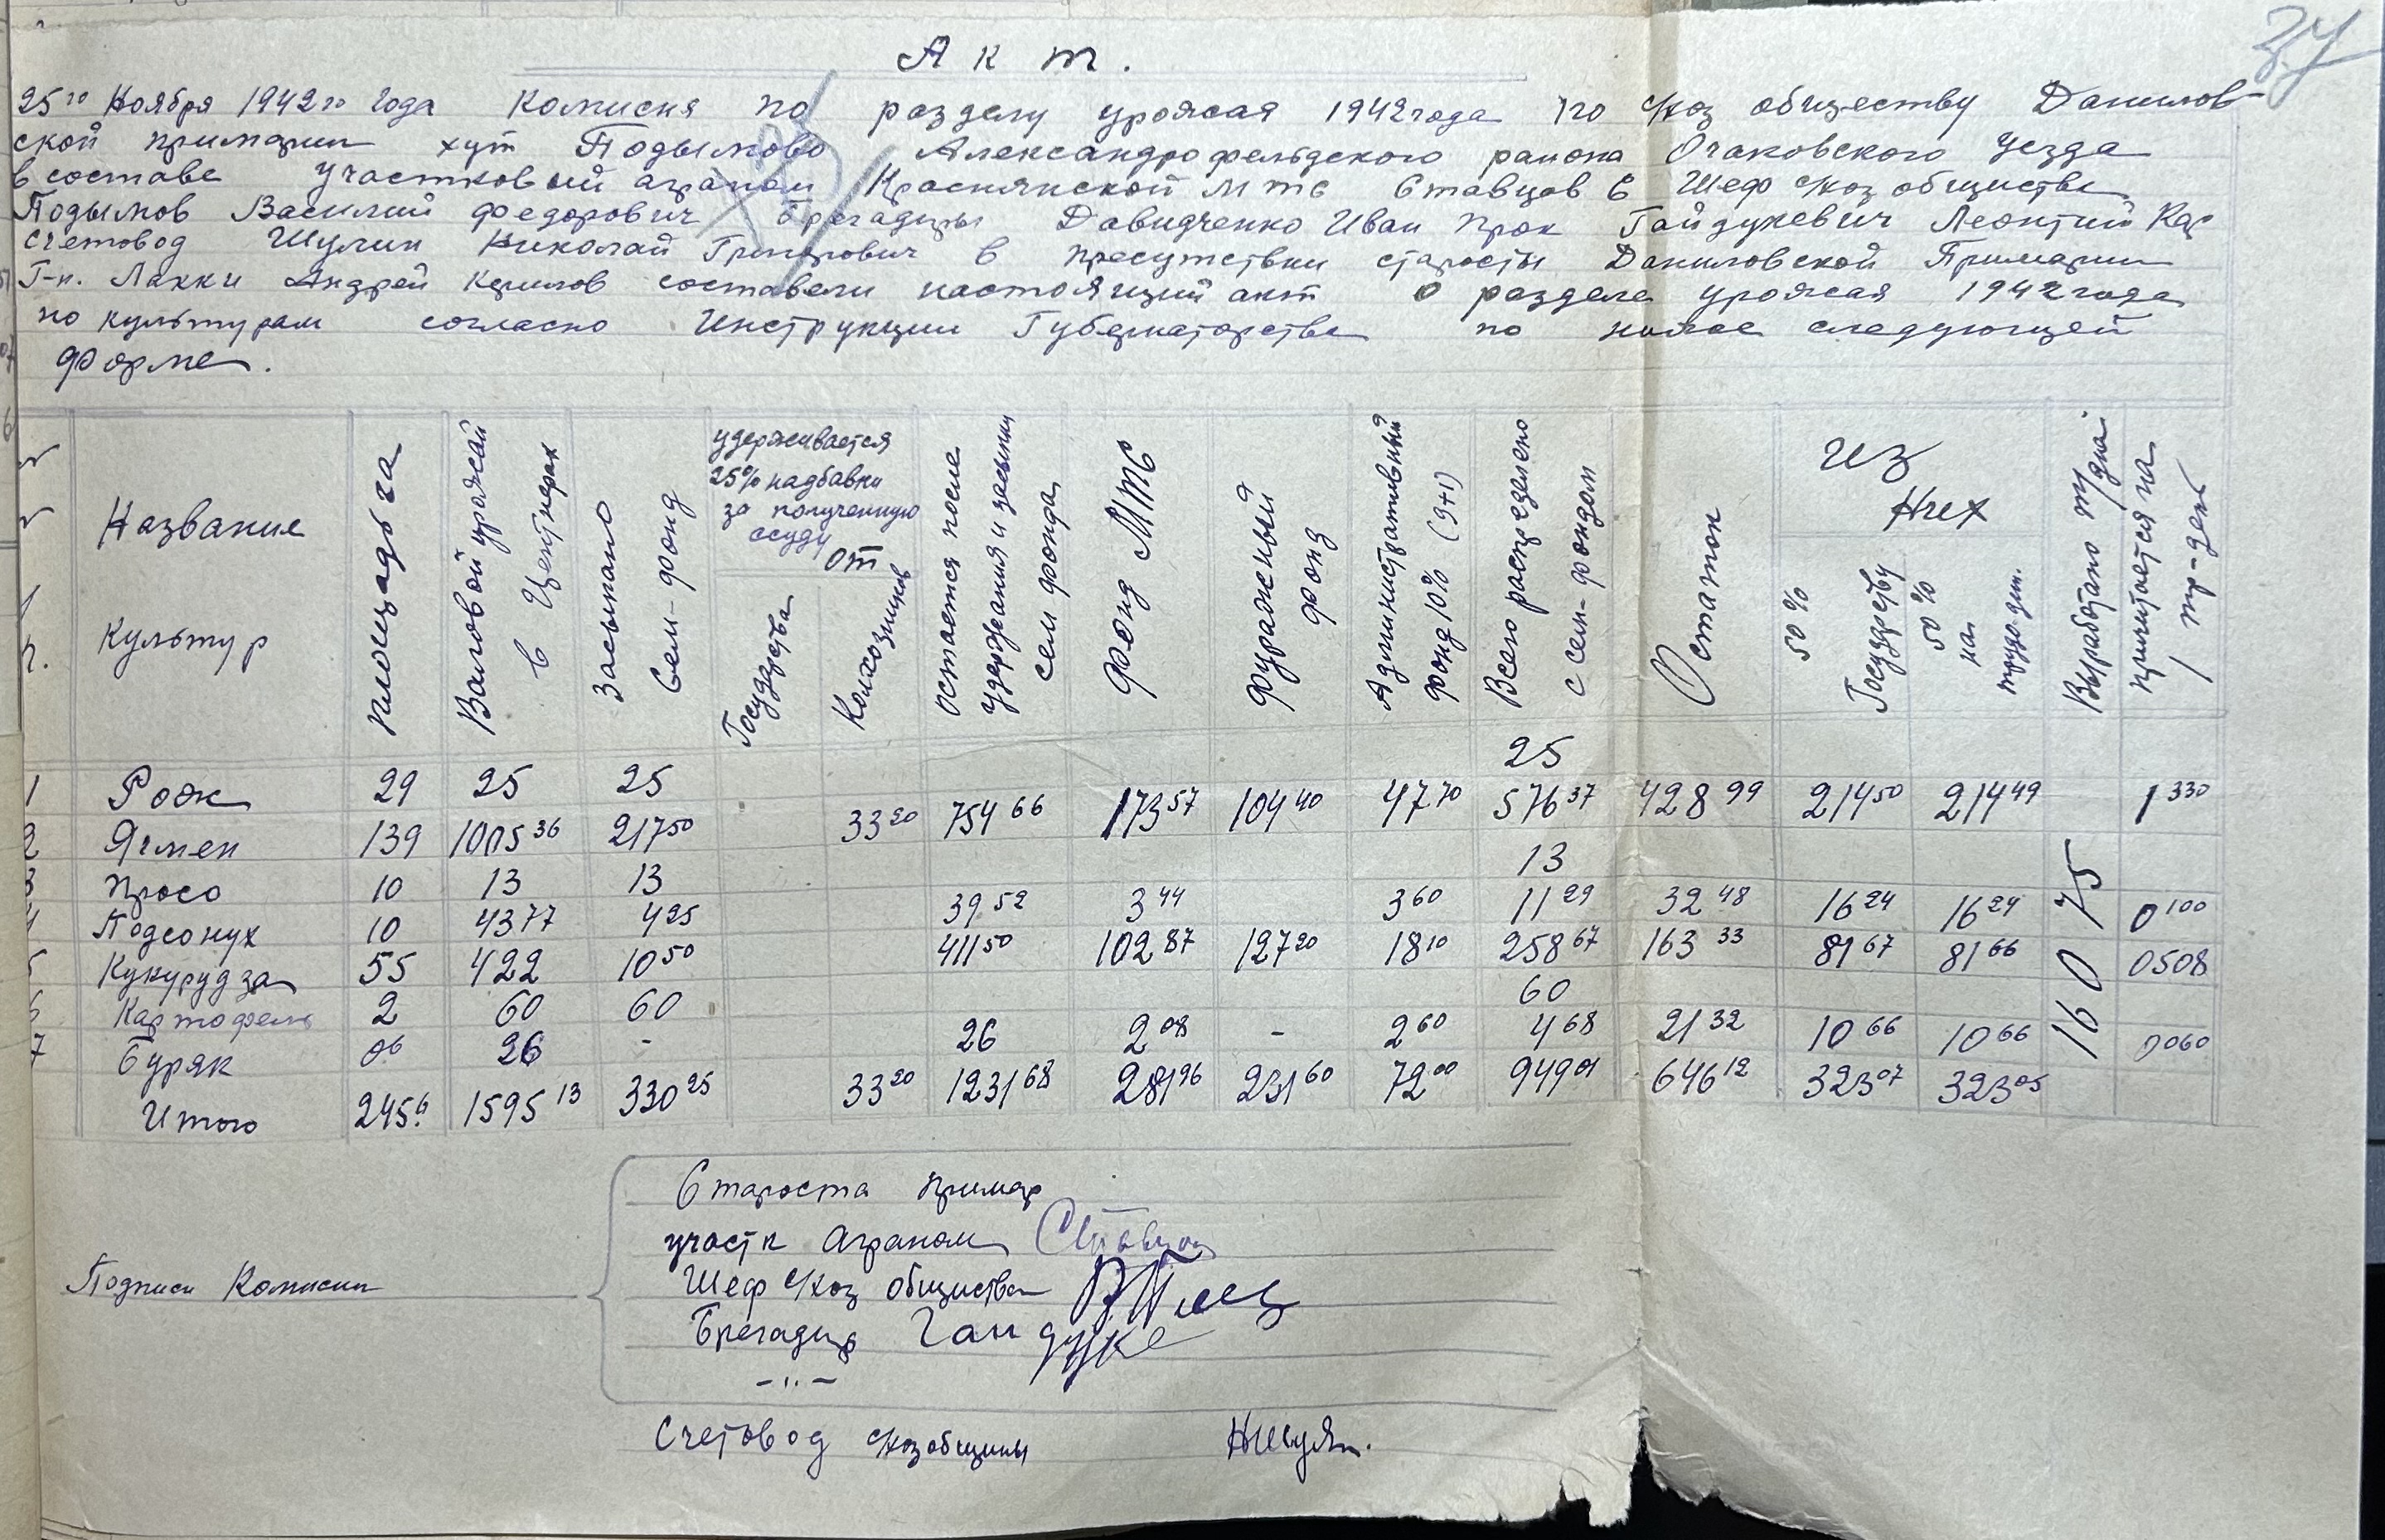 34
Акт.
25го Ноября 1942го года Комисия по разделу урожая 1942 года по с/хоз обществу Данилов-
ской примарии хут Подымово Александрофельдского района Очаковского Уезда
в составе участковый аграном Краснянской МТС Ставцов С Шеф с/хоз общества
Подымов Василий Федорович Брегадиры Давидченко Иван Прок Гайдукевич Леонтий Кар
счетовод Шулин Николай Григорович в пресутствии старосты Даниловской Примарии
Г-н. Лакки Андрей составели настоящий акт о разделе урожая 1942 года
по культурам согласно Инструкции Губернаторства по ниже следующей
форме.
Название Культур
Площадь га
Валовой урожай в Центнерах
Засыпано Сем-фонд
удерживается 25% надбавки за полученную ссуду от
Государства
Колхозников
Остается после удержания и засыпки сем фонда
Фонд МТС
Фуражный фонд
Административный фонд 10% (9+1)
Всего распределено с сем-фондом
Остаток
из Них
50% Государству
50% на трудо.дни.
Выработано т/дна
причитается на 1 тр-день
1 Рож 29 25 25 25
2 Ячмен 139 1005 36 217 50 33 20 754 66 173 57 104 40 47 70 576 37 428 99 214 50 214 49 1 330
3 Просо 10 13 13 13
4 Подсонух 10 43 77 4 25 39 52 3 44 3 60 11 29 32 48 16 24 16 24 0 100
5 Кукурудза 55 422 10 50 411 50 102 87 127 20 18 10 258 67 163 33 81 67 81 66 0508
6 Картофель 2 60 60 60
7 Буряк 06 26 - 26 2 08 - 2 60 4 68 21 32 10 66 10 66 0060
160 75
Итого 245.6 1595 13 330 25 33 20 1231 68 281 96 231 60 72 00 949 01 646 12 323 07 323 05
Подписи Комисии
Староста примар
участк аграном Ставцов
Шеф с/хоз общества
Брегадир Гайдуке
-"-
Счетовод с/хоз общины НШулин.